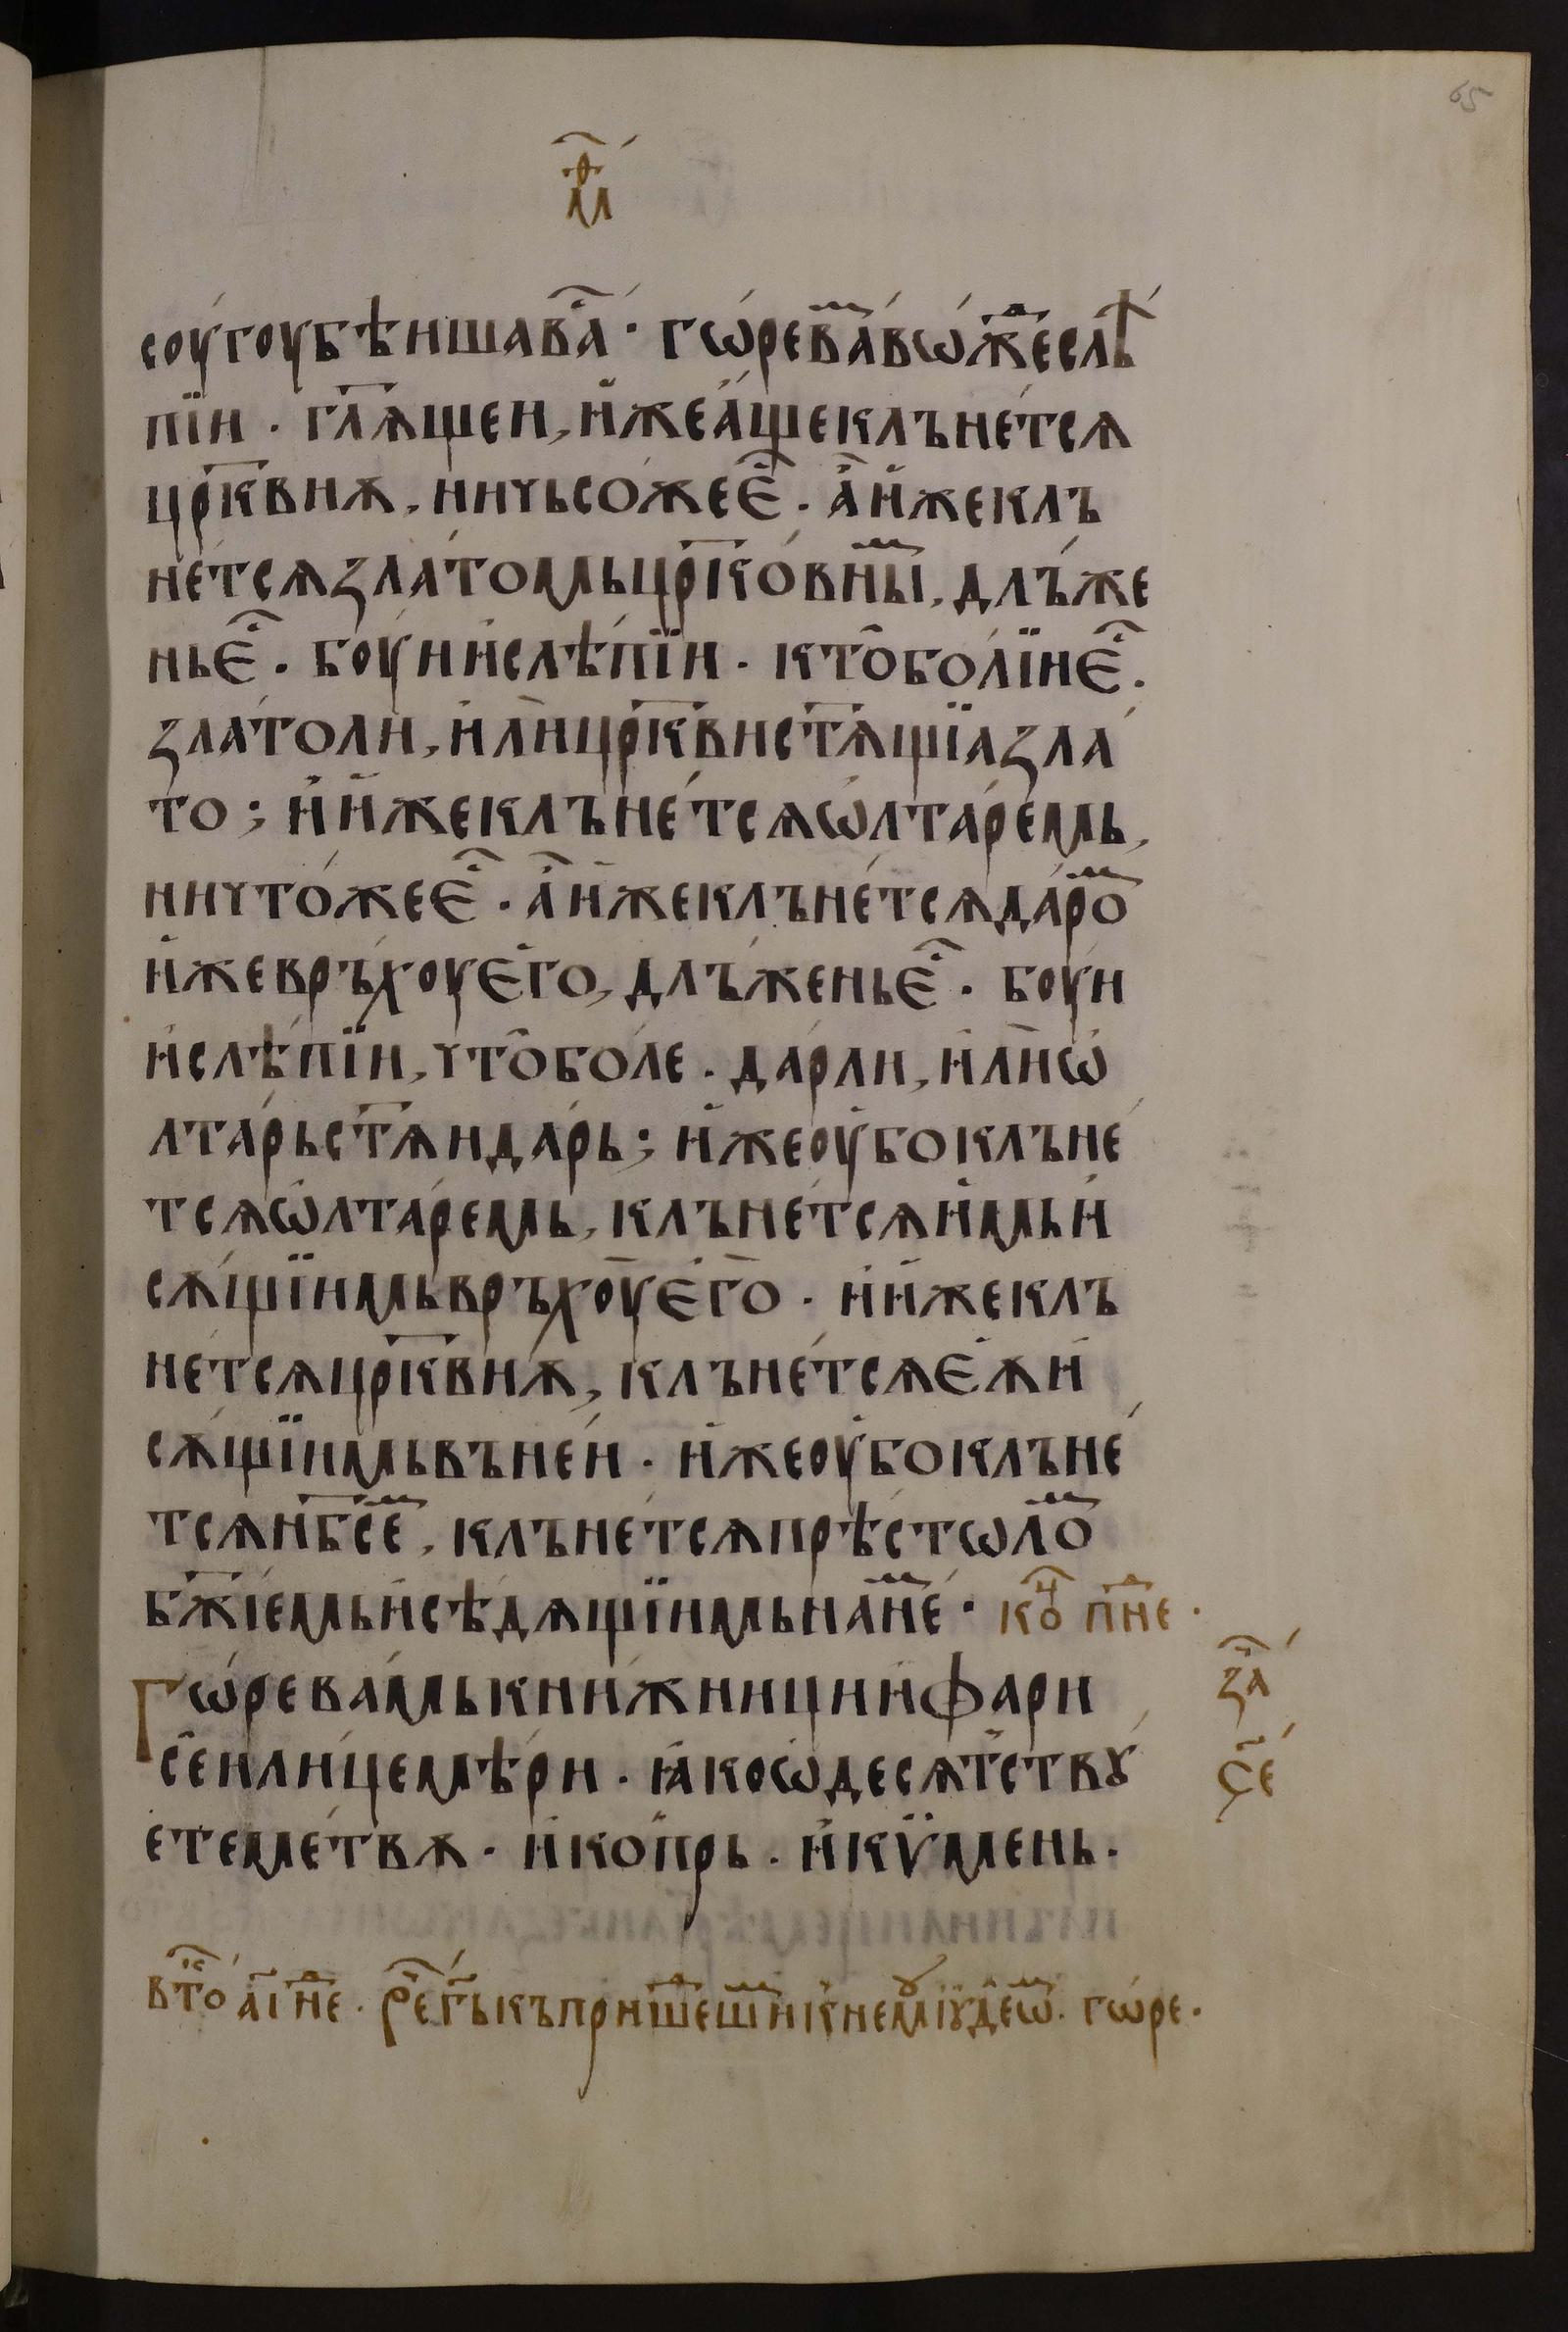 65
мⷴ҇
соу́гоубѣишава́҇ · гѡ́ревⷨа́вѡ́жⷣесл҄ѣ́
пїи · гл҃ѫщеи, и҆́жеа́щеклъне́тсѧ
цр҃квиѫ, ничьсо́жеѐ҇ · а҆̑и҆́жекль
не́тсѧзла́томьцр҃ко́внⷨы, длъ́же
ньѐ҇ · боу́иислѣ́пїи · кто̑бо́лїиѐ҇ ·
зла́толи̑, и҆ли̑цр҃квист҃ѧщїазла́
то ; и҆и҆́жеклъне́тсѧѡ҆лтаре́мь,
ничто́жеѐ҇ · а҆̑и҆́жеклъне́тсѧда́рⷨо
и҆́жеврьхоує҆го̀, длъ́женьѐ҇ · боу́и
и҆слѣ́пїи, что̑бо́ле · да́рли, и҆ли̑ѡ҆
лта́рьст҃ѧида́рь ; и҆́жеоу҆боклъне́
тсѧѡ҆лтаре́мь, клъне́тсѧи҆́мьи҆
сѫ́щїимьврьхоу̀є҆го̀ · и҆и҆́жеклъ
не́тсѧцр҃квиѫ, клъне́тсѧєѫи҆
сѫ́щїимьвъне́и · и҆́жеоу҆боклъне́
тсѧнб҃сⷨе, клъне́тсѧпрѣсто́лⷨо
бж҃їемьи҆сѣдѧщїимьнанⷨе́ · коⷱ҇ пⷣне ·
Гѡ́рева́мькни́жниции҆фари
се̑илицемѣ́ри · ꙗ҆́коѡ҆десѧ́тствꙋ́
етеме́твѫ · и҆ко́прь · и҆кѷме́нь ·
за҇
ск҃е
втⷪ҇ а҃і нⷣе · рⷱ҇е́ гь къпришⷣешⷨикнемꙋїꙋдⷷеѡⷨ · гѡ́ре ·